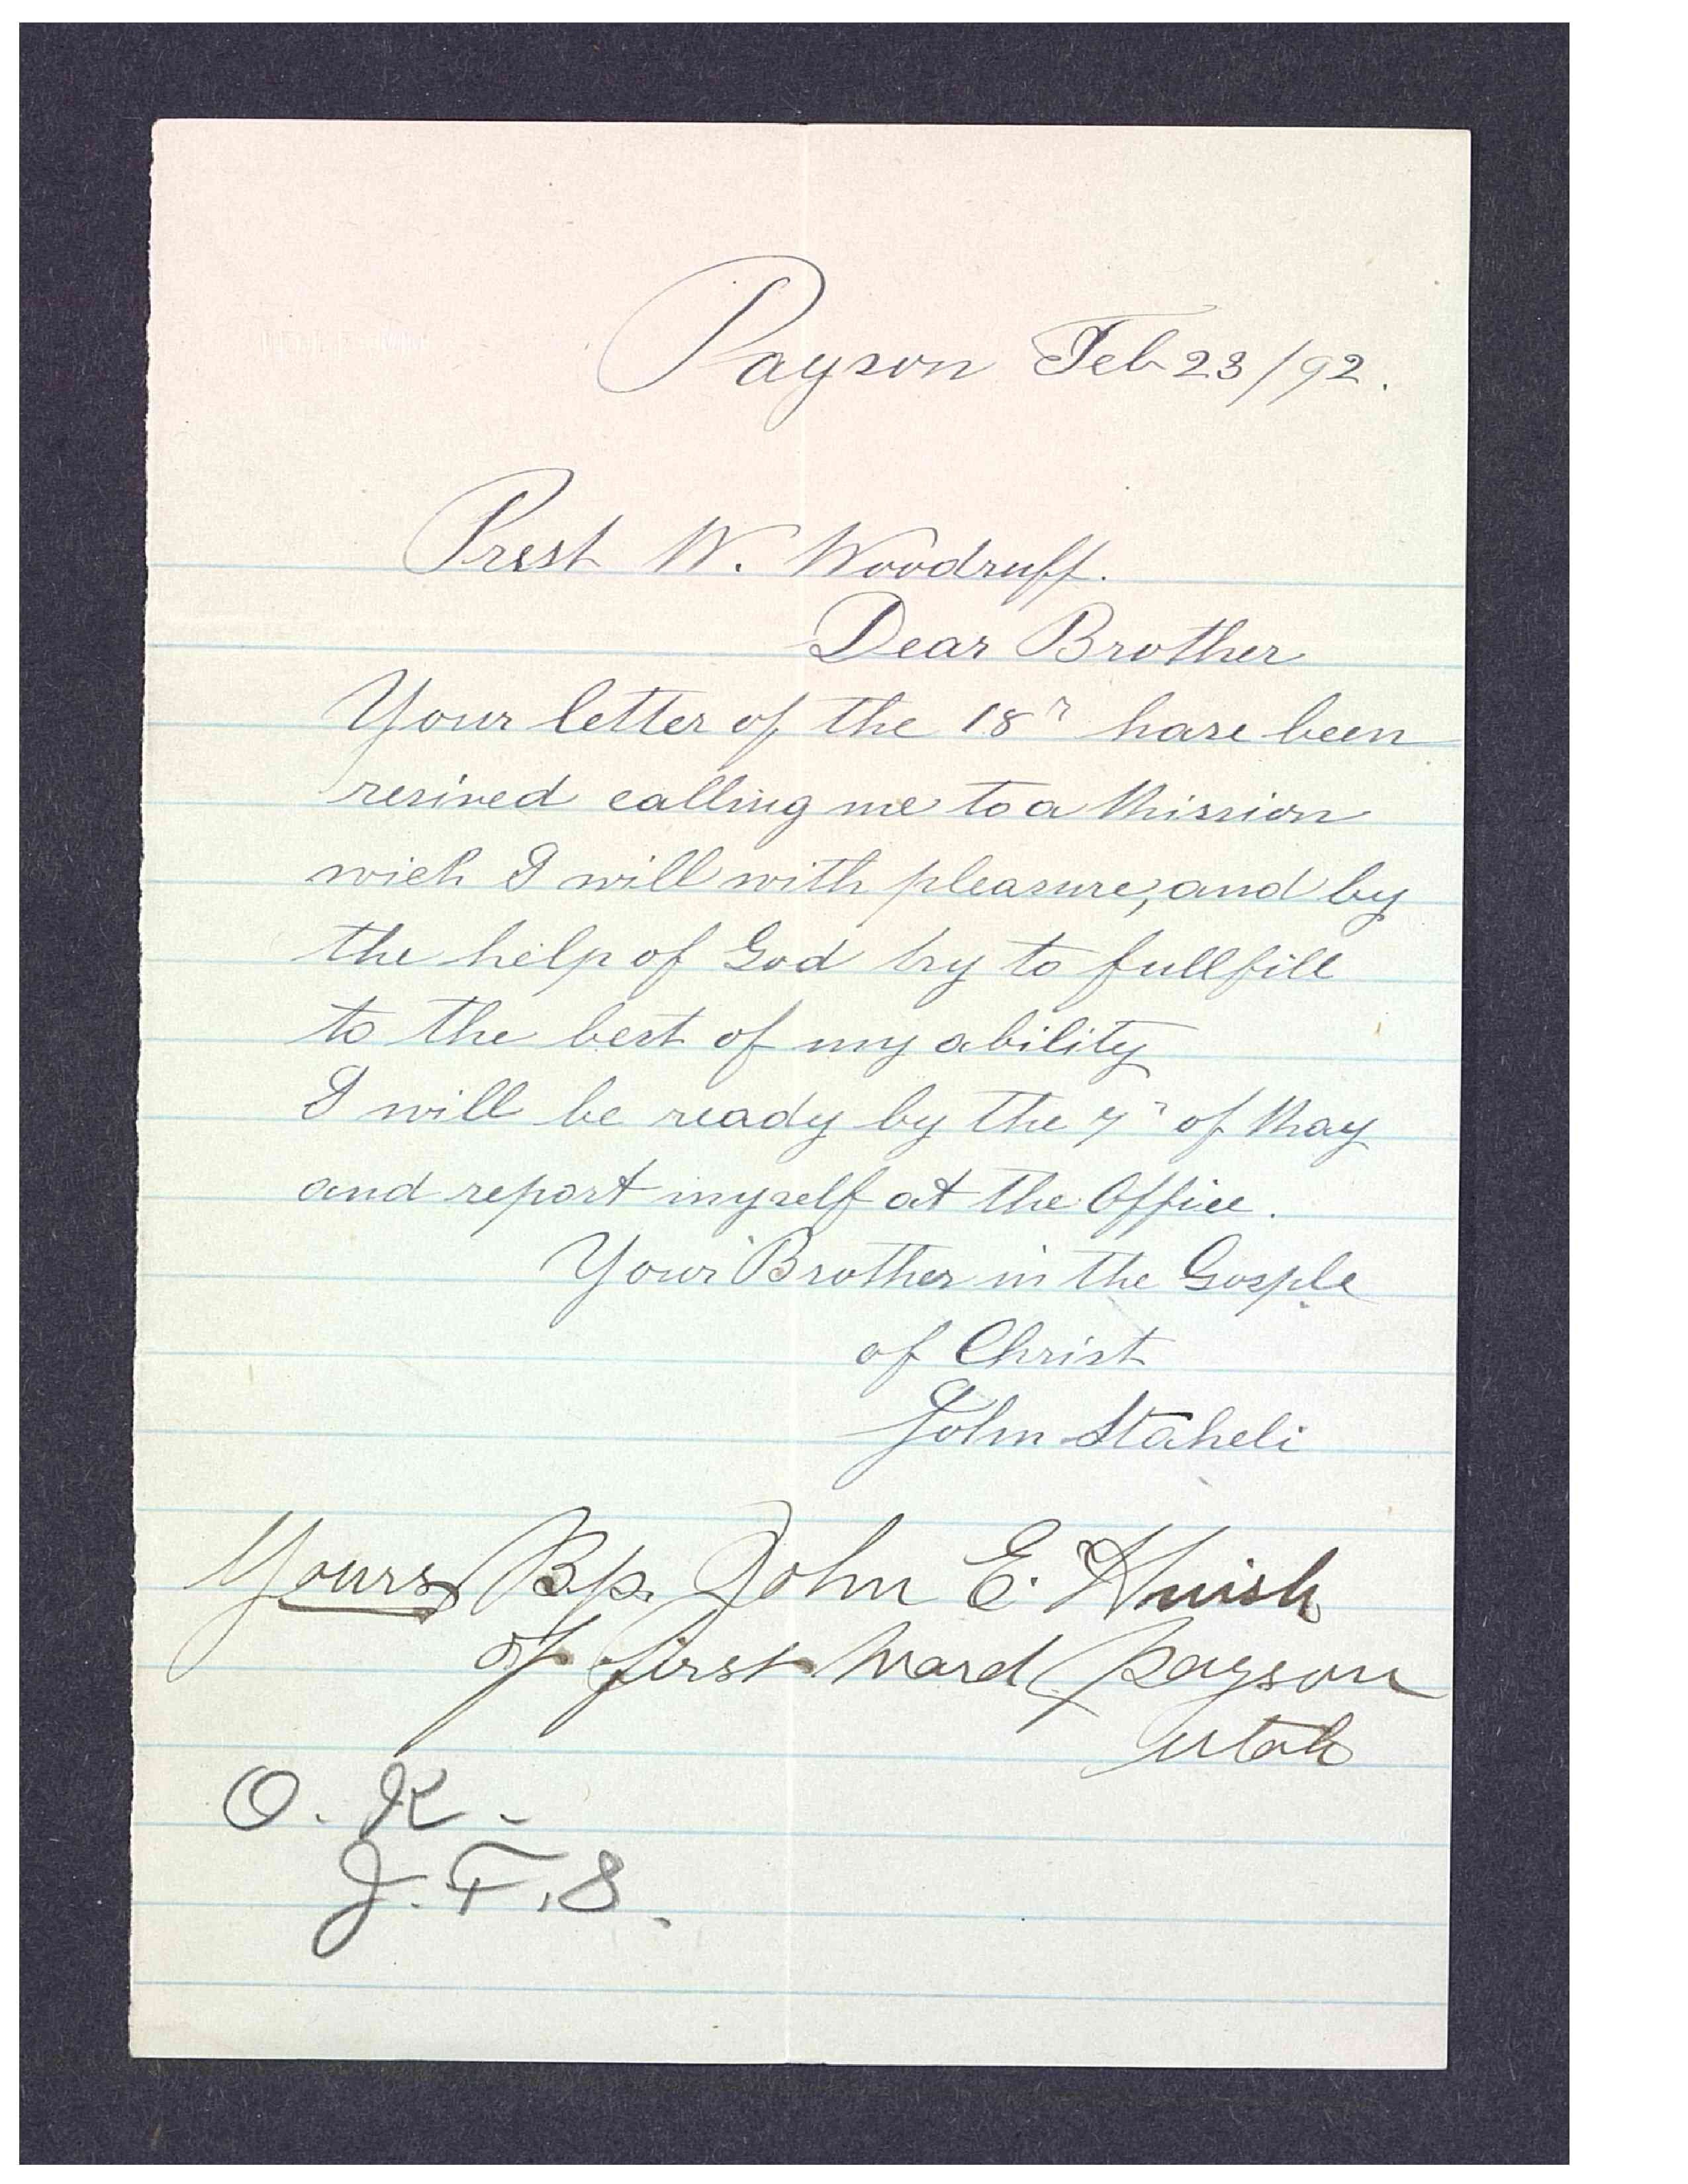 Payson Feb 23/92.
Prest W. Woodruff.
Dear Brother
Your letter of the 18" have been
resived calling me to a Mission
wich I will with pleasure, and by
the help of God try to fullfill
to the best of my ability
I will be ready by the 7" of May
and report myself at the Office.
Your Brother in the Gosple
of Christ
John Staheli
Yours Bp. John E. Huish
of first Ward Payson
Utah
O. K.
J. F. S.